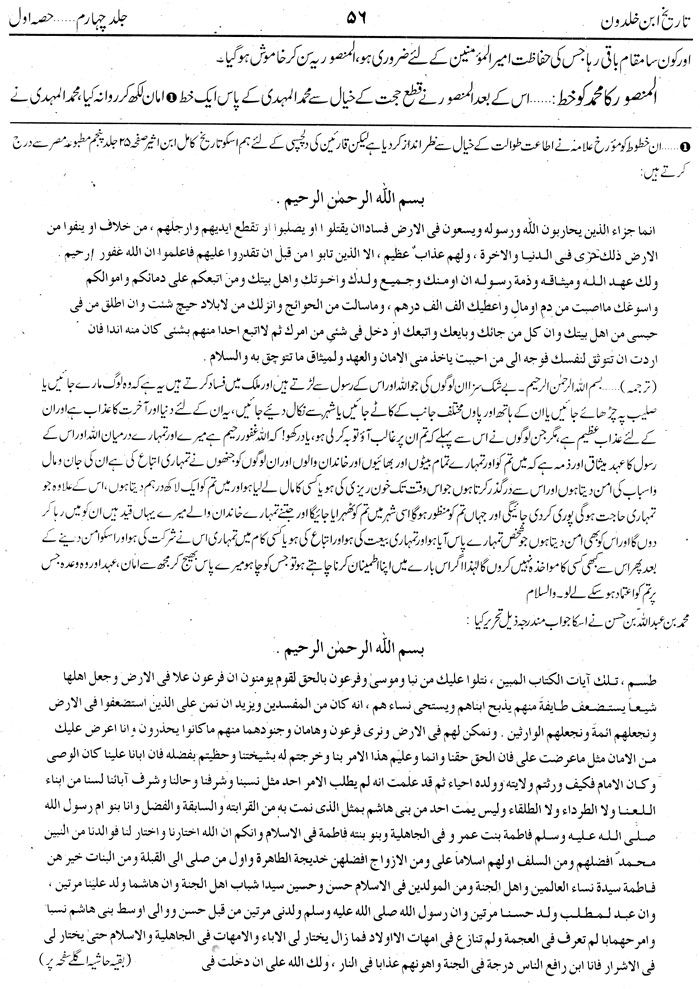 تاریخ ابن خلدون ۵۶ جلد چہارم ...... حصہ اول
اور کون سا مقام باقی رہا جس کی حفاظت امیر المؤمنین کے لئے ضروری ہو، المنصور یہ سن کر خاموش ہو گیا۔
المنصور کا محمد کو خط: ...... اس کے بعد المنصور نے قطع حجت کے خیال سے محمد المہدی کے پاس ایک خط ❶ امان لکھ کر روانہ کیا، محمد المہدی نے
❶ ...... ان خطوط کو مؤرخ علامہ نے اطاعت طوالت کے خیال سے نظر انداز کر دیا ہے لیکن قارئین کی دلچسپی کے لئے ہم اسکو تاریخ کامل ابن اثیر صفحہ ۲۵ جلد پنجم مطبوعہ مصر سے درج
کرتے ہیں:
بسم الله الرحمٰن الرحیم .
انما جزاء الذین یحاربون الله ورسوله ویسعون فی الارض فسادا ان یقتلوا او یصلبوا او تقطع ایدیهم وارجلهم ، من خلاف او ینفوا من
الارض ذلک خزی فی الدنیا والاخرة ، ولهم عذاب عظیم ، الا الذین تابوا من قبل ان تقدروا علیهم فاعلموا ان الله غفور رحیم .
ولک عهد الله ومیثاقه وذمة رسوله ان اومنک وجمیع ولدک واخوتک واهل بیتک ومن اتبعکم علی دمائکم واموالکم
واسوغک مااصبت من دم اومال واعطیک الف الف درهم ، وماسالت من الحوائج وانزلک من لابلاد حیج شئت وان اطلق من فی
حبسی من اهل بیتک وان کل من جائک وبایعک واتبعک او دخل فی شئی من امرک ثم لااتبع احدا منهم بشئی کان منه اندا فان
اردت ان تتوثق لنفسک فوجه الی من احببت یاخذ منی الامان والعهد ولمیثاق ما تتوجق به والسلام .
(ترجمہ) ...... بسم اللہ الرحمٰن الرحیم۔ بے شک سزا ان لوگوں کی جو اللہ اور اس کے رسول سے لڑتے ہیں اور ملک میں فساد کرتے ہیں یہ ہے کہ وہ لوگ مارے جائیں یا
صلیب پہ چڑھائے جائیں یا ان کے ہاتھ اور پاوں مختلف جانب کے کاٹے جائیں یا شہر سے نکال دیئے جائیں، یہ ان کے لئے دنیا اور آخرت کا عذاب ہے اور ان
کے لئے عذاب عظیم ہے، مگر جن لوگوں نے اس سے پہلے کہ تم ان پر غالب آؤ توبہ کر لی ہو، یاد رکھو! کہ اللہ غفور رحیم ہے میرے اور تمہارے درمیان اللہ اور اس کے
رسول کا عہد میثاق اور ذمہ ہے کہ میں تم کو اور تمہارے تمام بیٹوں اور بھائیوں اور خاندان والوں اور ان لوگوں کو جنھوں نے تمہاری اتباع کی ہے ان کی جان ومال
واسباب کی امن دیتا ہوں اور اس سے درگذر کرتا ہوں جو اس وقت تک خون ریزی کی ہو یا کسی کا مال لے لیا ہو اور میں تم کو ایک لاکھ درہم دیتا ہوں، اس کے علاوہ جو
تمہاری حاجت ہوگی پوری کر دی جائیگی اور جہاں تم کو منظور ہو گا اسی شہر میں تم کو ٹھہرایا جائیگا اور جتنے تمہارے خاندان والے میرے یہاں قید ہیں ان کو میں رہا کر
دوں گا اور اس کو بھی امن دیتا ہوں جو شخص تمہارے پاس آیا ہو اور تمہاری بیعت کی ہو اور اتباع کی ہو یا کسی کام میں تمہاری اس نے شرکت کی ہو اور اسکو امن دینے کے
بعد پھر اس سے کبھی کسی کا مواخذہ نہیں کروں گا لہٰذا اگر اس بارے میں اپنا اطمینان کرنا چاہتے ہو تو جس کو چاہو میرے پاس بھیج کر مجھ سے امان، عہد اور وہ وعدہ جس
پر تم کو اعتماد ہو سکے لے لو۔ والسلام
محمد بن عبداللہ بن حسن نے اسکا جواب مندرجہ ذیل تحریر کیا:
بسم الله الرحمٰن الرحیم .
طسم ، تلک آیات الکتاب المبین ، نتلوا علیک من نبا وموسیٰ وفرعون بالحق لقوم یومنون ان فرعون علا فی الارض وجعل اهلها
شیعا یستضعف طایفة منهم یذبح ابناهم ویستحی نساء هم ، انه کان من المفسدین ویزید ان نمن علی الذین استضعفوا فی الارض
ونجعلهم ائمة ونجعلهم الوارثین . ونمکن لهم فی الارض ونری فرعون وهامان وجنودهما منهم ماکانوا یحذرون وانا اعرض علیک
من الامان مثل ماعرضت علی فان الحق حقنا وانما وعلیم هذا الامر بنا وخرجتم له بشیختنا وحظیتم بفضله فان ابانا علینا کان الوصی
وکان الامام فکیف ورثتم ولایته وولده احیاء ثم قد علمت انه لم یطلب الامر احد مثل نسبنا وشرفنا وحالنا وشرف آبائنا لسنا من ابناء
اللعنا ولا الطرداء ولا الطلقاء ولیس یمت احد من بنی هاشم بمثل الذی نمت به من القرابته والسابقة والفضل وانا بنو ام رسول الله
صلی الله علیه وسلم فاطمة بنت عمر و فی الجاهلیة وبنو بنته فاطمة فی الاسلام وانکم ان الله اختارنا واختار لنا فوالدنا من النبین
محمد افضلهم ومن السلف اولهم اسلاما علی ومن الازواج افضلهن خدیجة الطاهرة واول من صلی الی القبلة ومن البنات خیر هن
فاطمة سیدة نساء العالمین واهل الجنة ومن المولدین فی الاسلام حسن وحسین سیدا شباب اهل الجنة وان هاشما ولد علینا مرتین ،
وان عبد لمطلب ولد حسنا مرتین وان رسول الله صلی الله علیه وسلم ولدنی مرتین من قبل حسن ووالی اوسط بنی هاشم نسبا
وامرحهمابا لم تعرف فی العجمة ولم تنازع فی امهات الاولاد فما زال یختار لی الاباء والامهات فی الجاهلیة والاسلام حتی یختار لی
فی الاشرار فانا ابن رافع الناس درجة فی الجنة واهونهم عذابا فی النار ، ولک الله علی ان دخلت فی (بقیہ حاشیہ اگلے صفحہ پر)